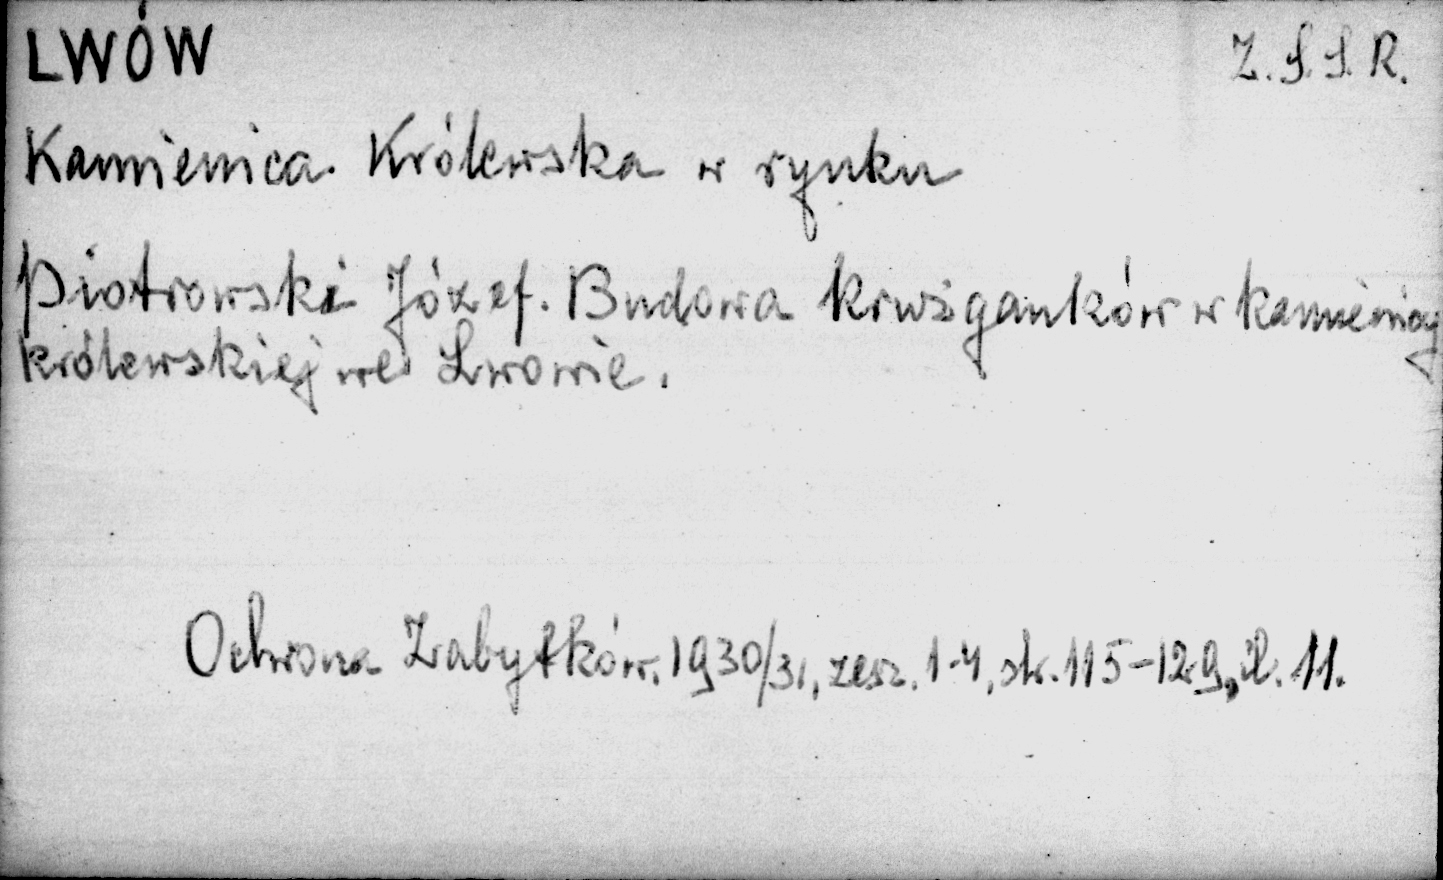 LWÓW
Z.S.S.R.
Kamienica Królewska w rynku
Piotrowski Józef. Budowa krużganków w kamienicy
królewskiej we Lwowie.
Ochrona Zabytków. 1930/31, zesz. 1-4, str. 115-129, il. 11.